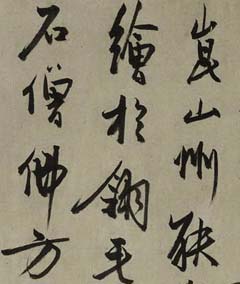 崑山州
繪於翎毛
石僧佛方